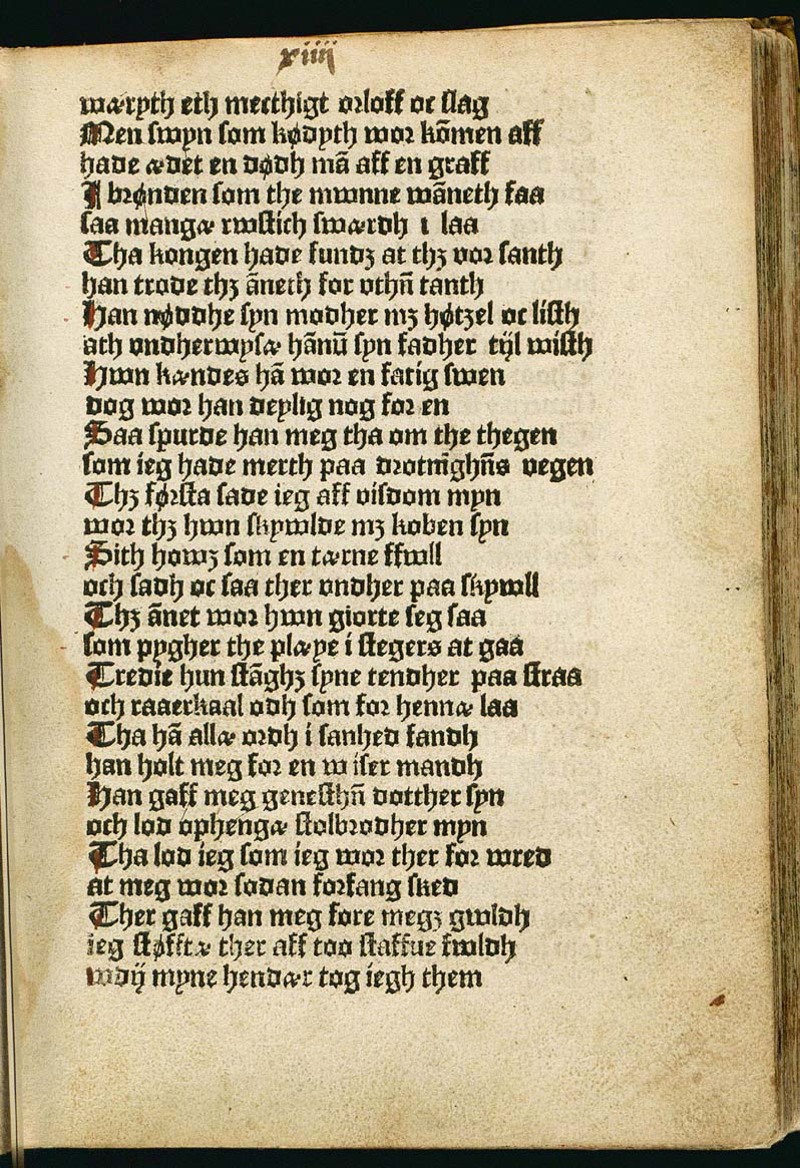 xiiij
wæryth eth mecthigt orloff oc slag
Men swyn som kødyth wor kōmen aff
hade ædet en dødh mā aff en graff
I brønden som the mwnne wāneth faa
saa mangæ rwstich swærdh i laa
Tha kongen hade fundȝ at thȝ vor santh
han trode thȝ āneth for vthn̄ tanth
Han nøddhe syn modher mȝ høtzel oc listh
ath vndherwysæ hānū syn fadher tijl wisth
Hwn kændes hā wor en fatig swen
dog wor han deylig nog for en
Saa spurde han meg tha om the thegen
som ieg hade merth paa drotnīghn̄s vegen
Thȝ førsta sade ieg aff visdom myn
wor thȝ hwn skywlde mȝ koben syn
Sith howȝ som en tærne ffwll
och sadh oc saa ther vndher paa skywll
Thȝ ānet wor hwn giorte seg saa
som pygher the plæye i stegers at gaa
Tredie hun stāghȝ syne tendher paa straa
och raaerkaal odh som for hennæ laa
Tha hā allæ ordh i sanhed fandh
han holt meg for en wiser mandh
Han gaff meg genesthn̄ dotther syn
och lod ophengæ stolbrodher myn
Tha lod ieg som ieg wor ther for wred
at meg wor sodan forfang sked
Ther gaff han meg fore megȝ gwldh
ieg støfftæ ther aff too staffue fwldh
wdij myne hendær tog iegh them